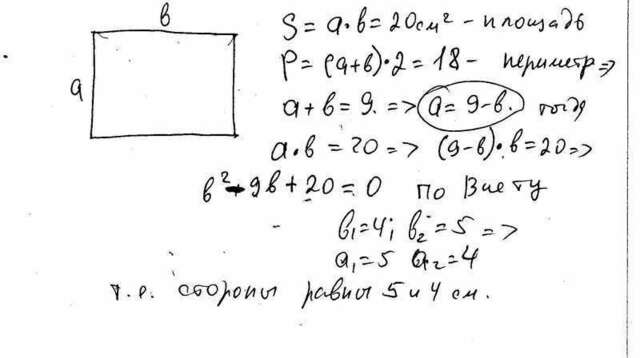 в
a
S = a·в = 20 см² - площадь
P = (a+в)·2 = 18 - периметр =>
a + в = 9. => a = 9-в. тогда
a·в = 20 => (9-в)·в = 20 =>
в² - 9в + 20 = 0 по Виету
в₁=4; в₂=5 =>
a₁=5 a₂=4
т.е. стороны равны 5 и 4 см.